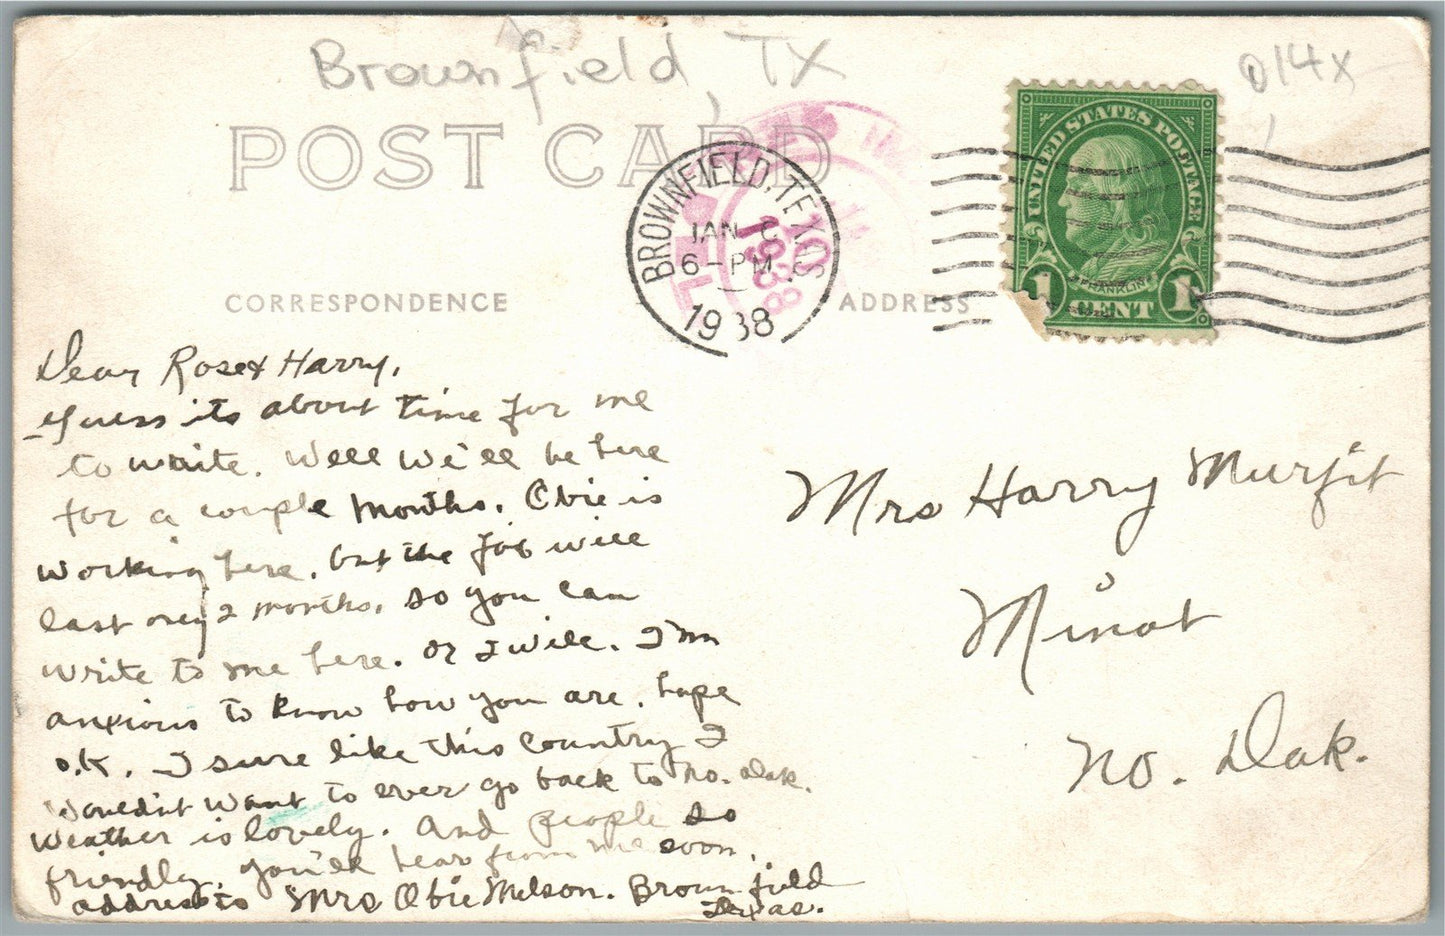 Brownfield, TX
014x
POST CARD
BROWNFIELD, TEXAS
JAN
6-PM
1938
1938
UNITED STATES POSTAGE
FRANKLIN
1 CENT 1
CORRESPONDENCE
ADDRESS
Dear Rose & Harry,
Guess its about time for me
to write. Well We'll be here
for a couple Months. Obie is
working here, but the job will
last only 2 months, so you can
write to me here. or I will. I'm
anxious to know how you are, hope
o.k. I sure like this Country I
Wouldn't want to ever go back to No. Dak.
Weather is lovely. And people so
friendly. You'll hear from me soon.
address to Mrs Obie Melson. Brownfield
Texas.
Mrs Harry Murfit
Minot
No. Dak.